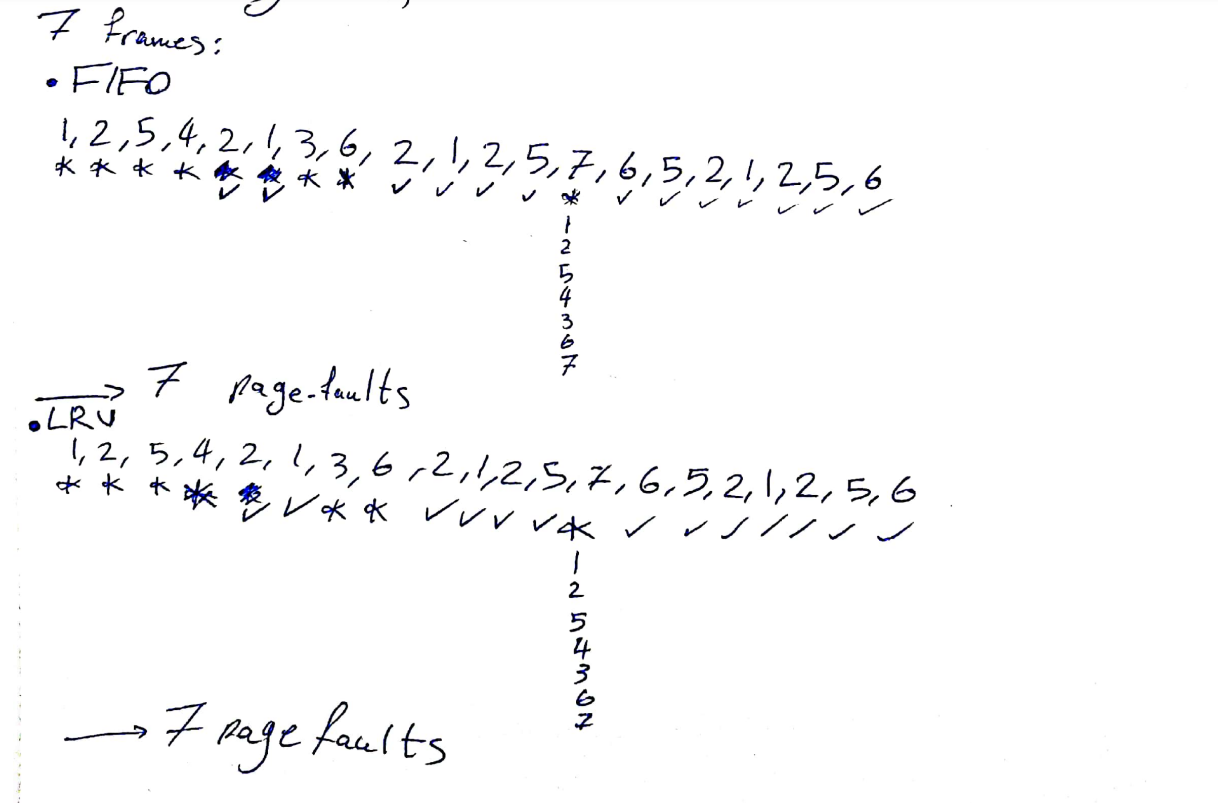 7 frames:
• FIFO
1, 2, 5, 4, 2, 1, 3, 6, 2, 1, 2, 5, 7, 6, 5, 2, 1, 2, 5, 6
* * * * ✓ ✓ * * ✓ ✓ ✓ ✓ * ✓ ✓ ✓ ✓ ✓ ✓ ✓
1
2
5
4
3
6
7
→ 7 page-faults
• LRU
1, 2, 5, 4, 2, 1, 3, 6, 2, 1, 2, 5, 7, 6, 5, 2, 1, 2, 5, 6
* * * * ✓ ✓ * * ✓ ✓ ✓ ✓ * ✓ ✓ ✓ / / ✓ ✓
1
2
5
4
3
6
7
→ 7 page faults